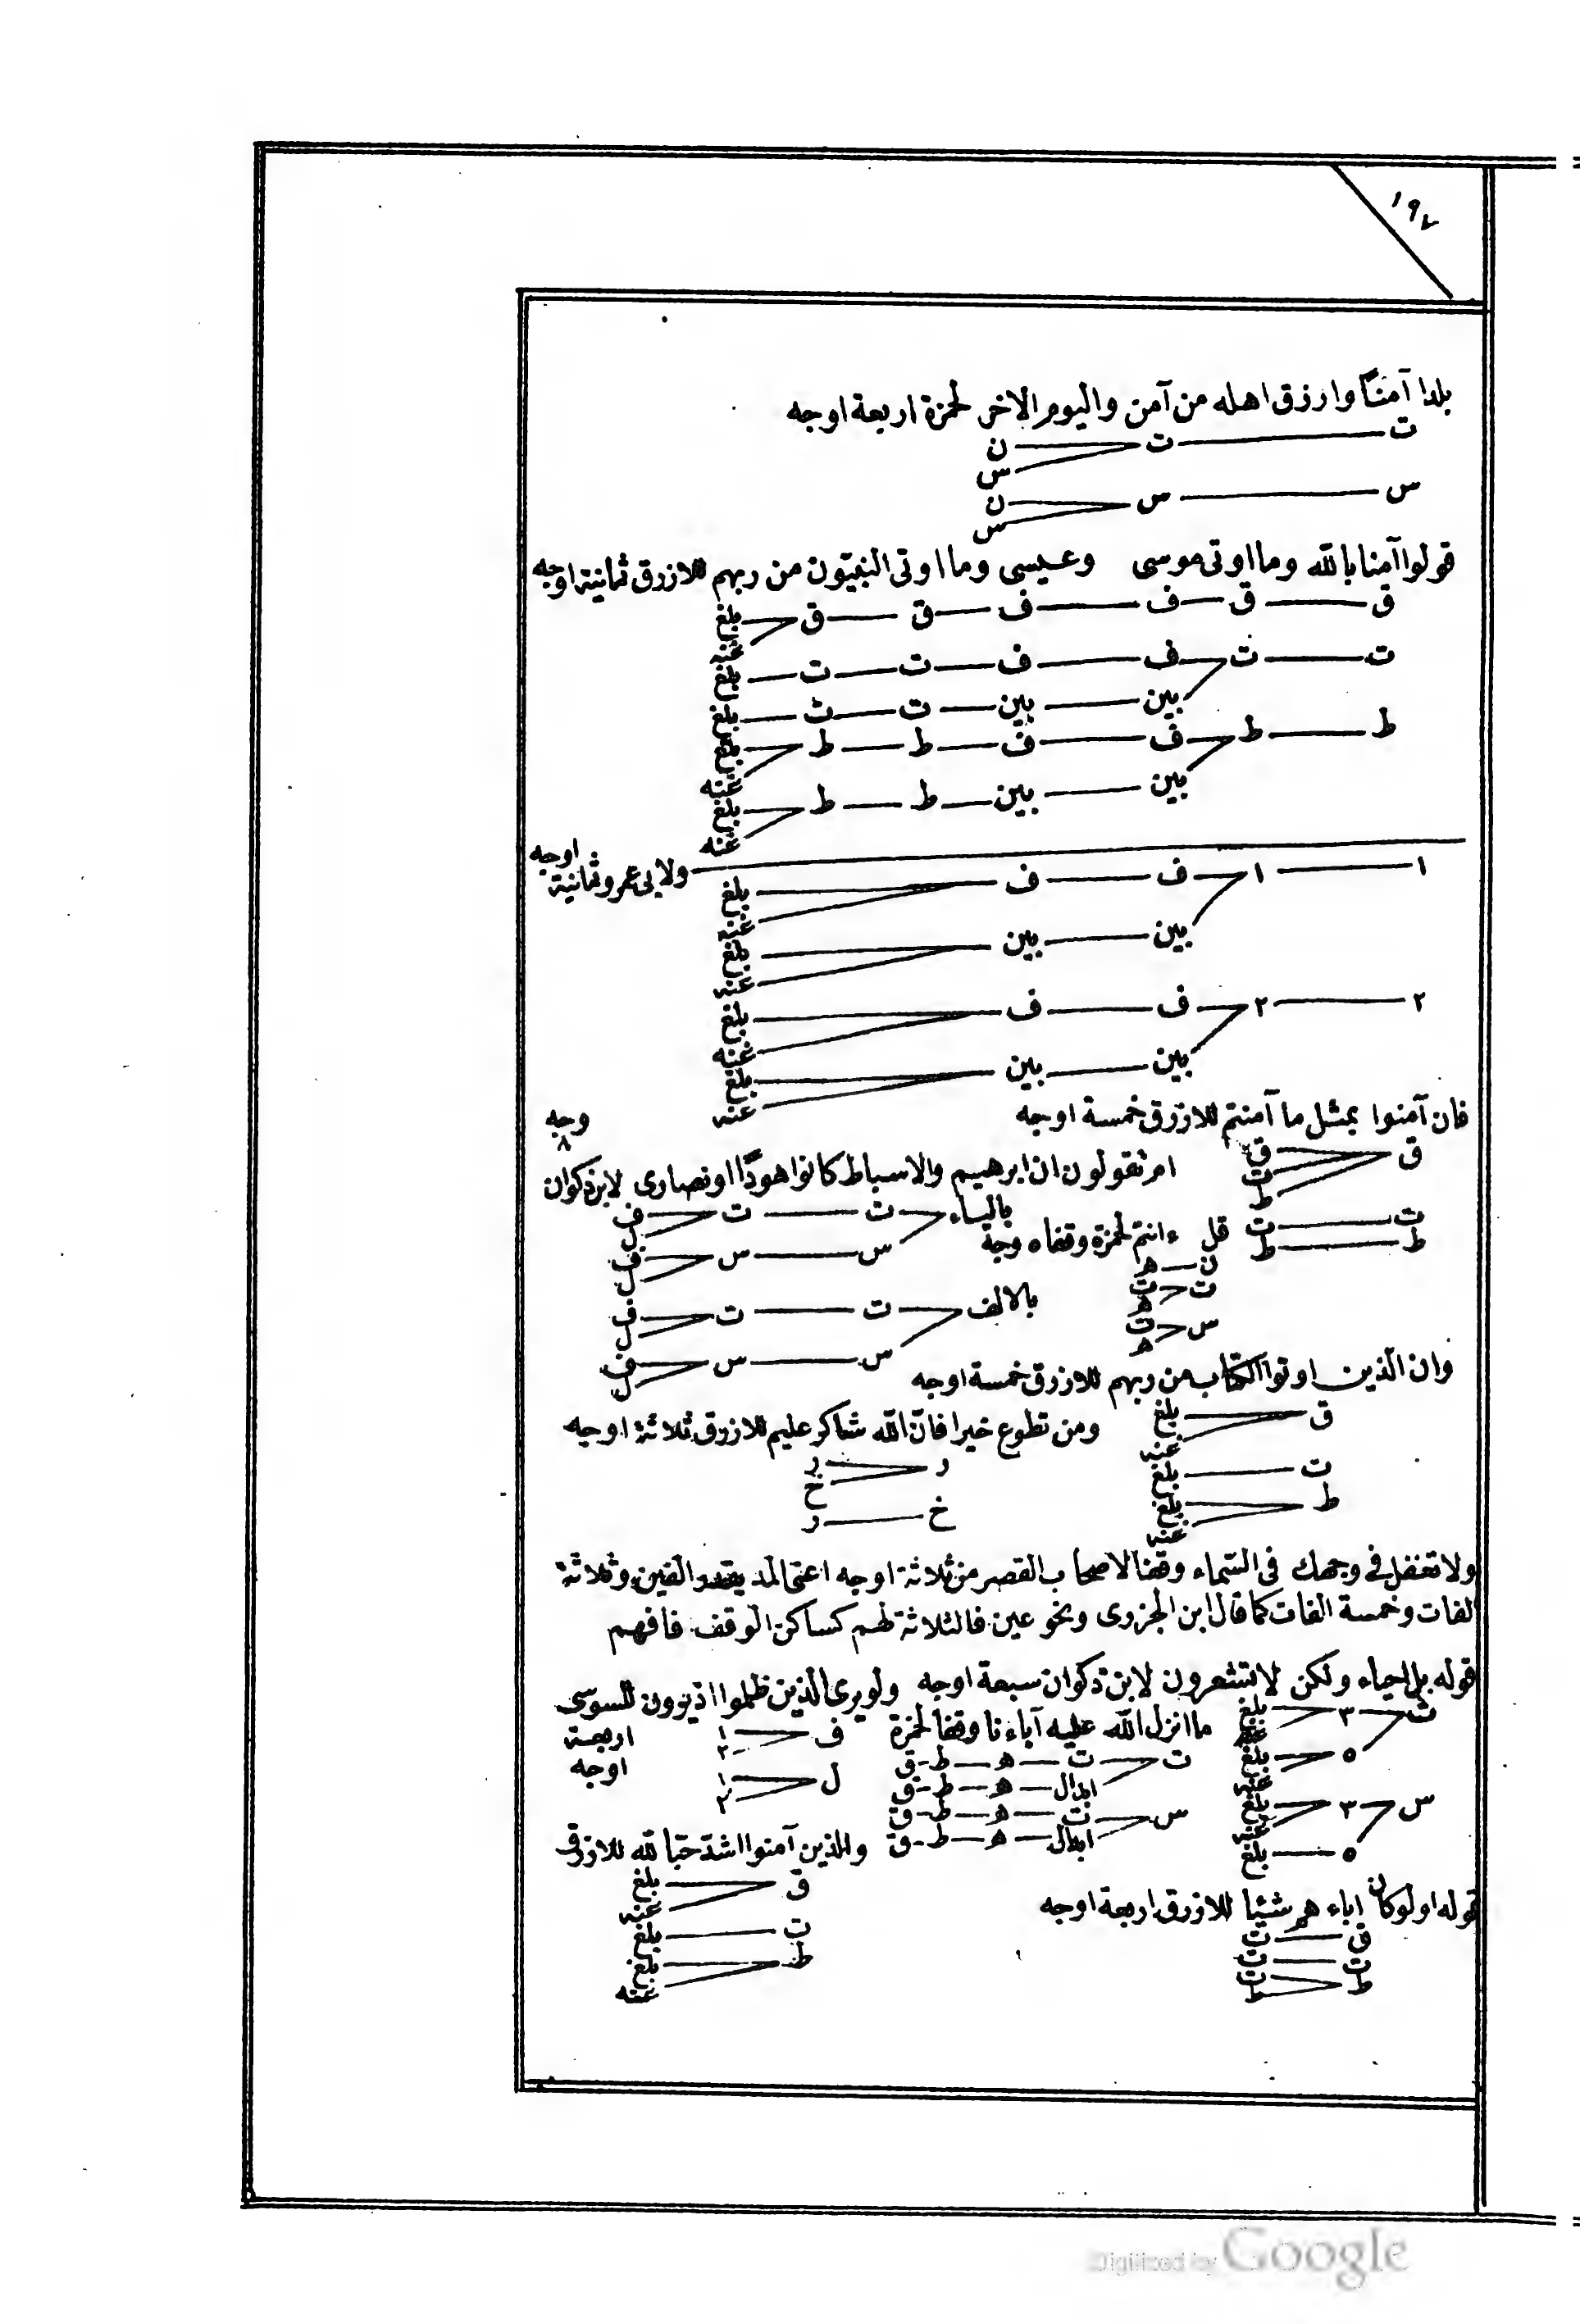 ١٩٧
بلدا آمنًا وارزق اهله من آمن واليوم الاخر لحمزة اربعة اوجه
ت ت ن
س
س س ن
س
قولوا آمنا بالله وما اوتى موسى وعيسى وما اوتى النبيّون من ربهم للازرق ثمانية اوجه
ق ق ف ف ق ق بلغ
غنه
ت ت ف ف ت ت بلغ
بين بين ت ت بلغ
ط ط ف ف ط ط بلغ
غنه
بين بين ط ط بلغ
غنه
ولابى عمرو ثمانية اوجه
١ ١ ف ف بلغ
غنه
بين بين بلغ
غنه
٢ ٢ ف ف بلغ
غنه
بين بين بلغ
غنه
فان آمنوا بمثل ما آمنتم للازرق خمسة اوجه
ق ق
ت
ط
ت ت
ط ط
ام تقولون ان ابرهيم والاسباط كانوا هودًا او نصارى لابن ذكوان ٨ وجه
بالياء ت ت ف
ل
س س ف
ل
بالالف ت ت ف
ل
س س ف
ل
قل ءانتم لحمزة وقفا ٥ وجه
ن ه
ت ت
ه
س ت
ه
وان الّذين اوتوا الكتاب من ربهم للازرق خمسة اوجه
ق بلغ
غنه
ت بلغ
ط بلغ
غنه
ومن تطوع خيرا فانّ الله شاكر عليم للازرق ثلاثة اوجه
ر ر
خ
خ ر
ولا تغفل فى وجهك فى السّماء وقفا لاصحاب القصر من ثلاثة اوجه اعنى المد بقدر الفين وثلاثة
الفات وخمسة الفات كما قال ابن الجزرى ونحو عين فالثلاثة لهم كساكن الوقف فافهم
قوله بل احياء ولكن لا تشعرون لابن ذكوان سبعة اوجه
ت ٣ بلغ
غنه
٥ بلغ
غنه
س ٣ بلغ
غنه
٥ بلغ
ولو يرى الّذين ظلموا اذ يرون للسوسى اربعة اوجه
ف ١
٢
ل ١
٢
ما انزل الله عليه آباءنا وقفا لحمزة
ت ت ه ط ق
ابدال ه ط ق
س ت ه ط ق
ابدال ه ط ق
والذين آمنوا اشدّ حبّا لله للازرق
ق بلغ
غنه
ت بلغ
ط بلغ
غنه
قوله اولو كان اباءهم شيئا للازرق اربعة اوجه
ق ت
ت ت
ط ت
ط
Digitized by Google